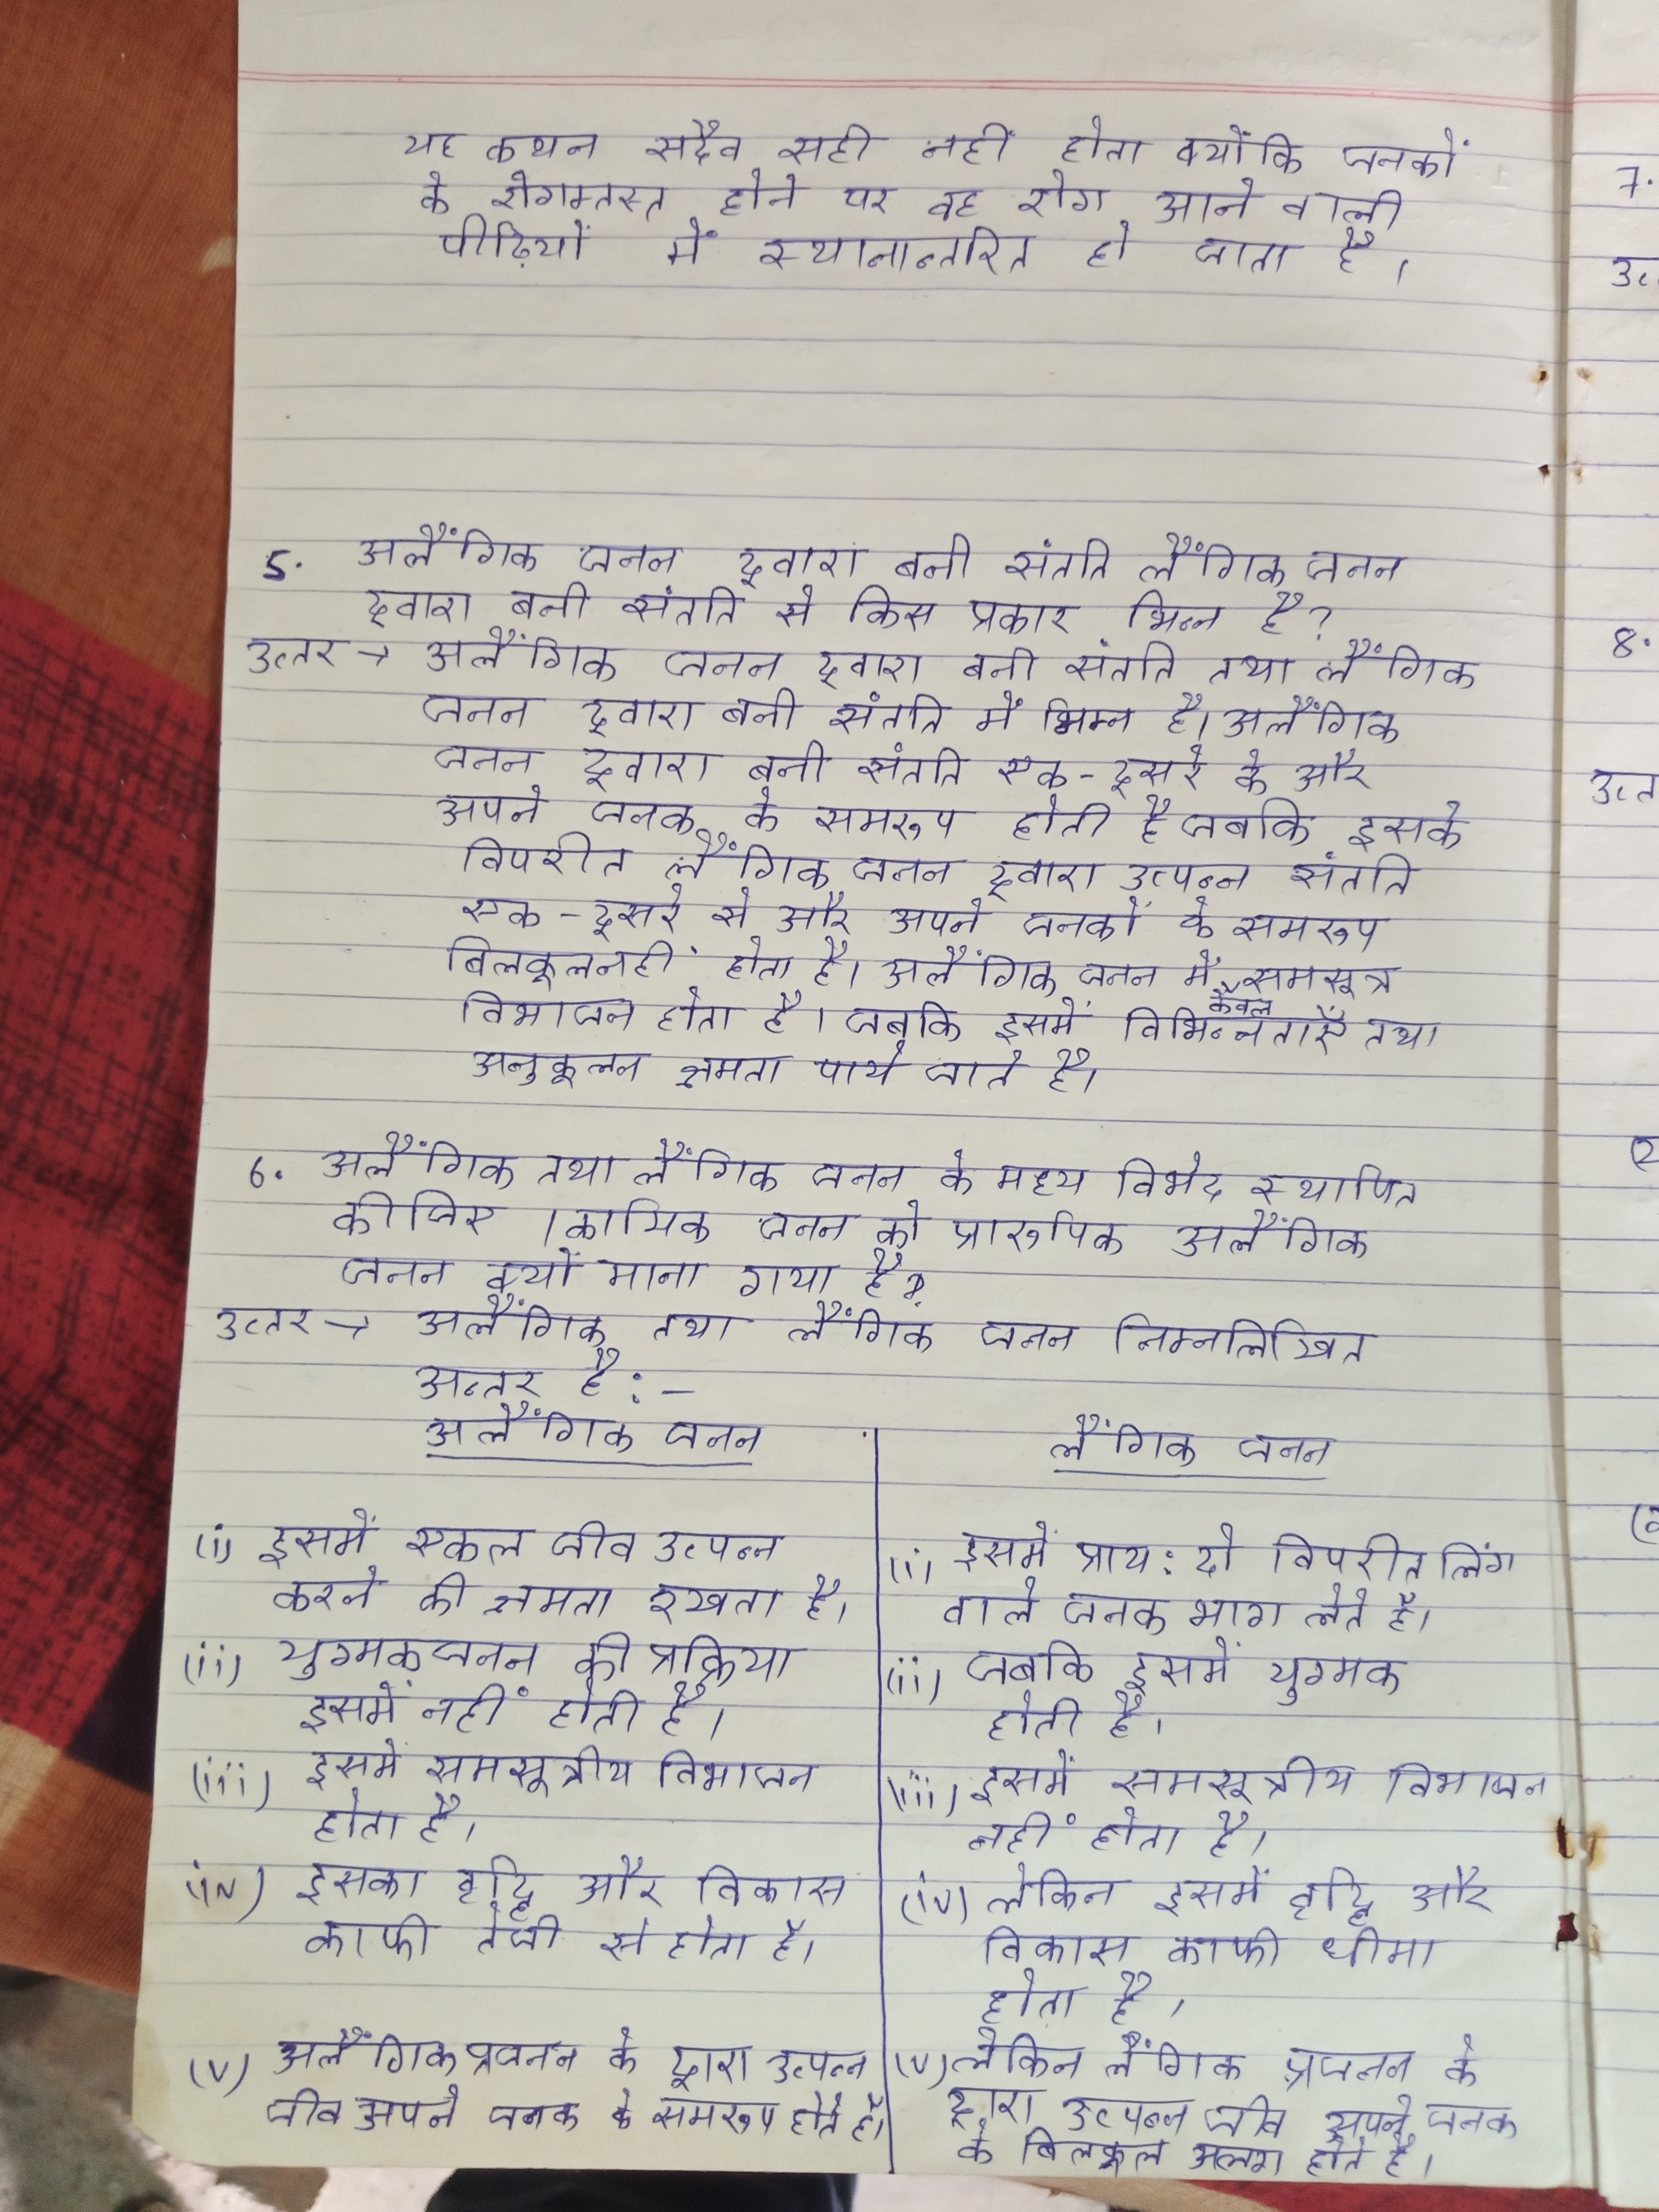 यह कथन सदैव सही नहीं होता क्योंकि जनकों
के रोगग्रस्त होने पर वह रोग आने वाली
पीढ़ियों में स्थानान्तरित हो जाता है।
5. अलैंगिक जनन द्वारा बनी संतति लैंगिक जनन
द्वारा बनी संतति से किस प्रकार भिन्न है?
उत्तर → अलैंगिक जनन द्वारा बनी संतति तथा लैंगिक
जनन द्वारा बनी संतति में भिम्न है। अलैंगिक
जनन द्वारा बनी संतति एक-दूसरे के और
अपने जनक के समरूप होती है जबकि इसके
विपरीत लैंगिक जनन द्वारा उत्पन्न संतति
एक-दूसरे से और अपने जनकों के समरूप
बिलकूल नहीं होता है। अलैंगिक जनन में समसूत्र
विभाजन होता है। जबकि इसमें केवल विभिन्नताएँ तथा
अनुकूलन क्षमता पाये जाते है।
6. अलैंगिक तथा लैंगिक जनन के मध्य विभेद स्थापित
कीजिए। कायिक जनन को प्रारूपिक अलैंगिक
जनन क्यों माना गया है?
उत्तर → अलैंगिक तथा लैंगिक जनन निम्नलिखित
अन्तर है:-
अलैंगिक जनन
(i) इसमें एकल जीव उत्पन्न
करने की क्षमता रखता है।
(ii) युग्मक जनन की प्रक्रिया
इसमें नहीं होती है।
(iii) इसमें समसूत्रीय विभाजन
होता है।
(iv) इसका वृद्धि और विकास
काफी तेजी से होता है।
(v) अलैंगिक प्रजनन के द्वारा उत्पन्न
जीव अपने जनक के समरूप होते है।
लैंगिक जनन
(i) इसमें प्राय: दो विपरीत लिंग
वाले जनक भाग लेते है।
(ii) जबकि इसमें युग्मक
होती है।
(iii) इसमें समसूत्रीय विभाजन
नहीं होता है।
(iv) लेकिन इसमें वृद्धि और
विकास काफी धीमा
होता है।
(v) लेकिन लैंगिक प्रजनन के
द्वारा उत्पन्न जीव अपने जनक
के बिलकूल अलग होते है।
7.
8.